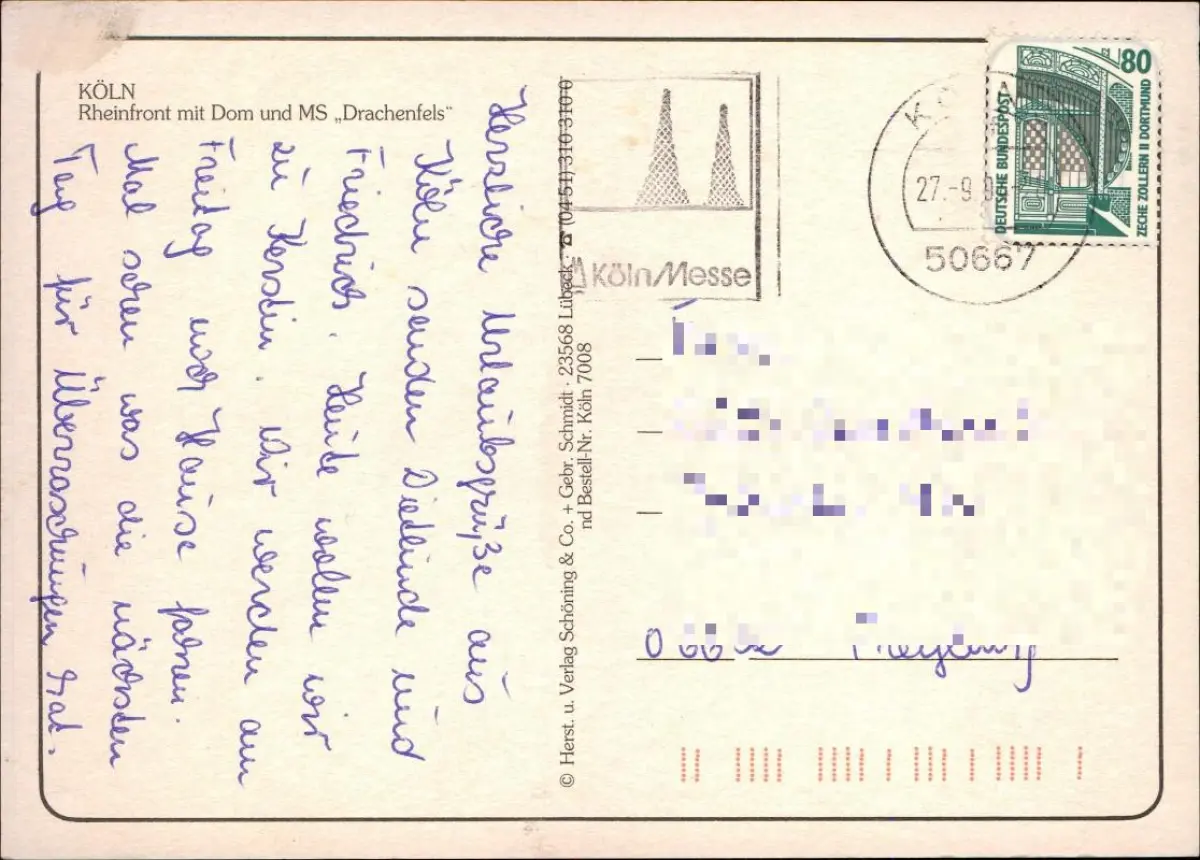 KÖLN
Rheinfront mit Dom und MS „Drachenfels“
Herzliche Urlaubsgrüße aus
Köln senden Dietlinde und
Friedrich. Heute wollen wir
zu Kerstin. Wir werden am
Freitag nach Hause fahren.
Mal sehen was die nächsten
Tag für Überraschungen hat.
© Herst. u. Verlag Schöning & Co. + Gebr. Schmidt · 23568 Lübeck · ☎ (04 51) 310 310 0
nd Bestell-Nr. Köln 7008
Köln/Messe
27.-9.9
50667
80
DEUTSCHE BUNDESPOST
ZECHE ZOLLERN II DORTMUND